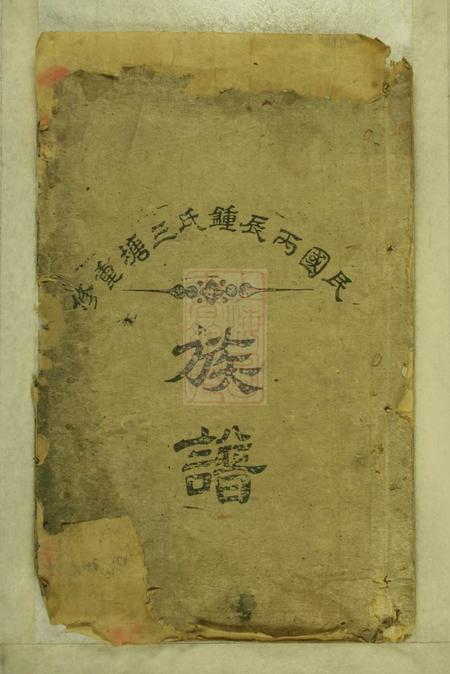 民國丙辰鍾氏三塘重修
族
譜